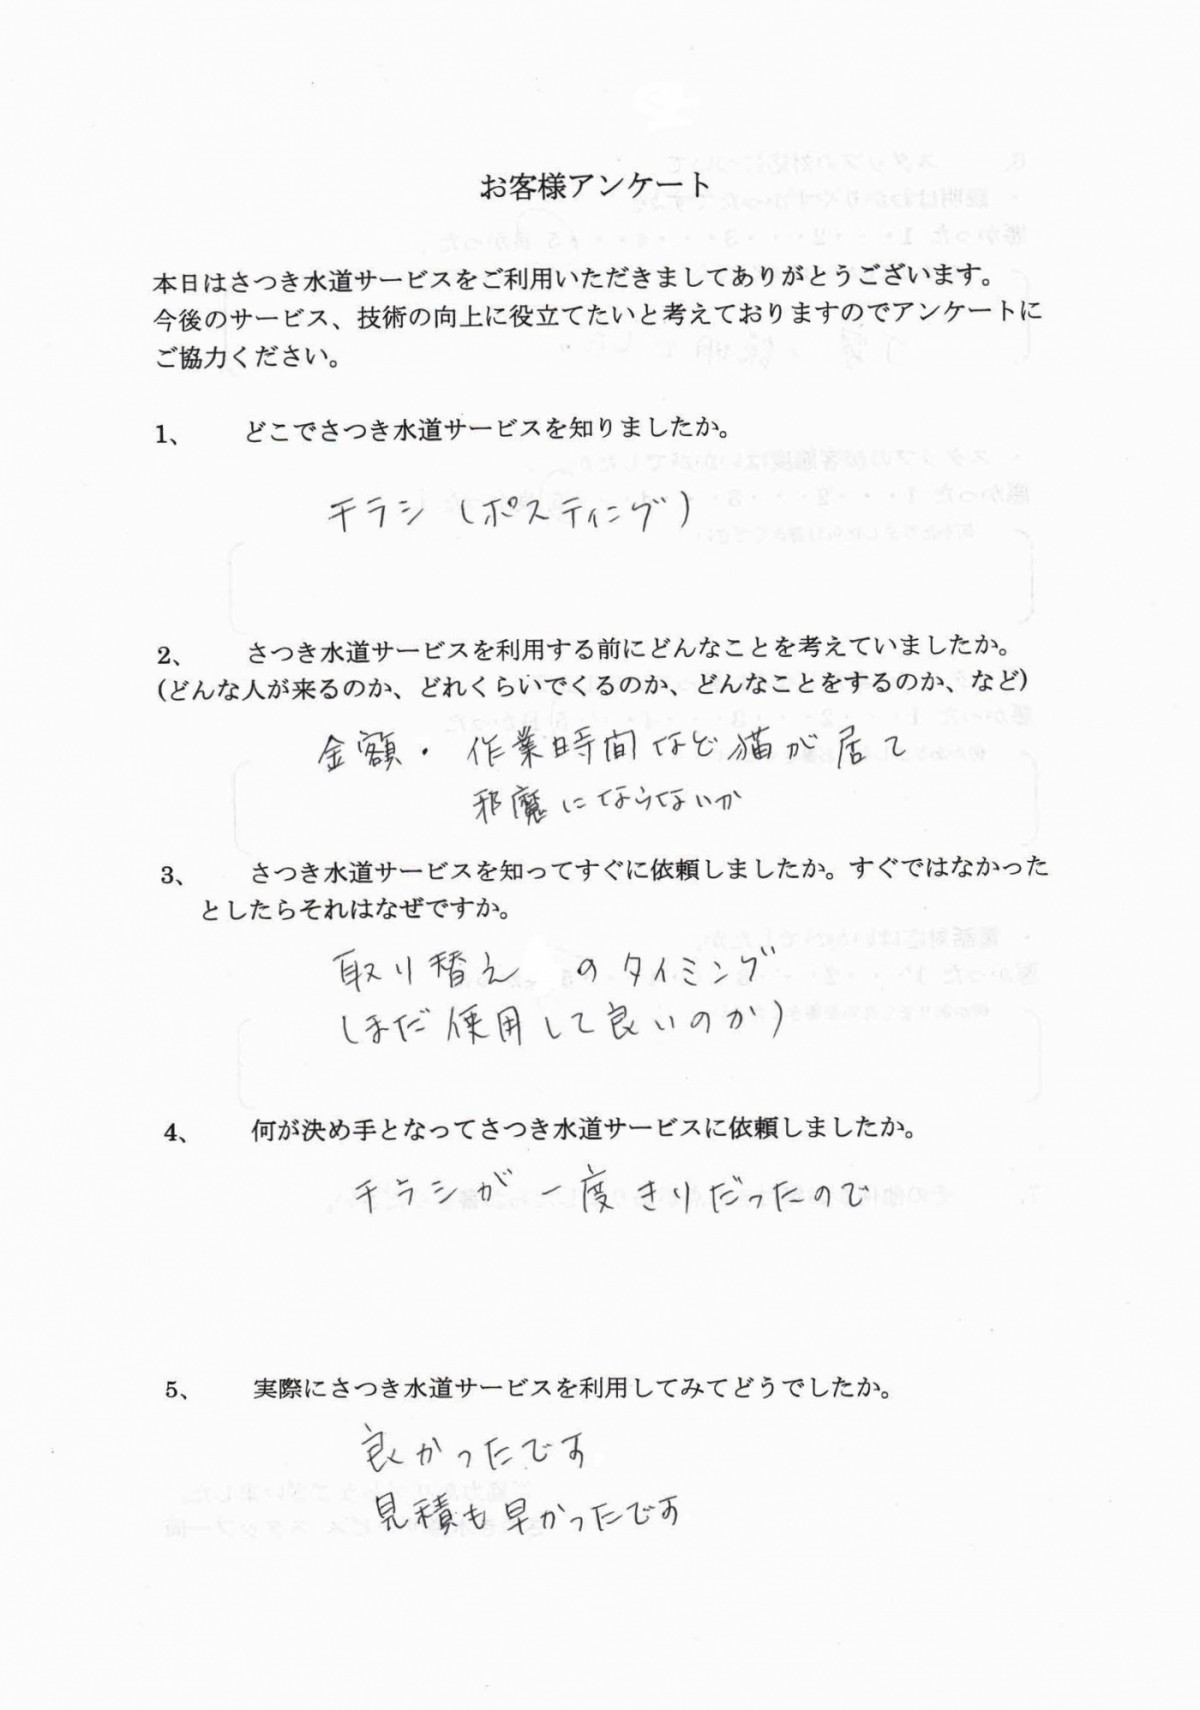 お客様アンケート
本日はさつき水道サービスをご利用いただきましてありがとうございます。
今後のサービス、技術の向上に役立てたいと考えておりますのでアンケートに
ご協力ください。
1、 どこでさつき水道サービスを知りましたか。
チラシ(ポスティング)
2、 さつき水道サービスを利用する前にどんなことを考えていましたか。
(どんな人が来るのか、どれくらいでくるのか、どんなことをするのか、など)
金額・作業時間など猫が居て
邪魔にならないか
3、 さつき水道サービスを知ってすぐに依頼しましたか。すぐではなかった
としたらそれはなぜですか。
取り替え のタイミング
(まだ使用して良いのか)
4、 何が決め手となってさつき水道サービスに依頼しましたか。
チラシが一度きりだったので
5、 実際にさつき水道サービスを利用してみてどうでしたか。
良かったです
見積も早かったです